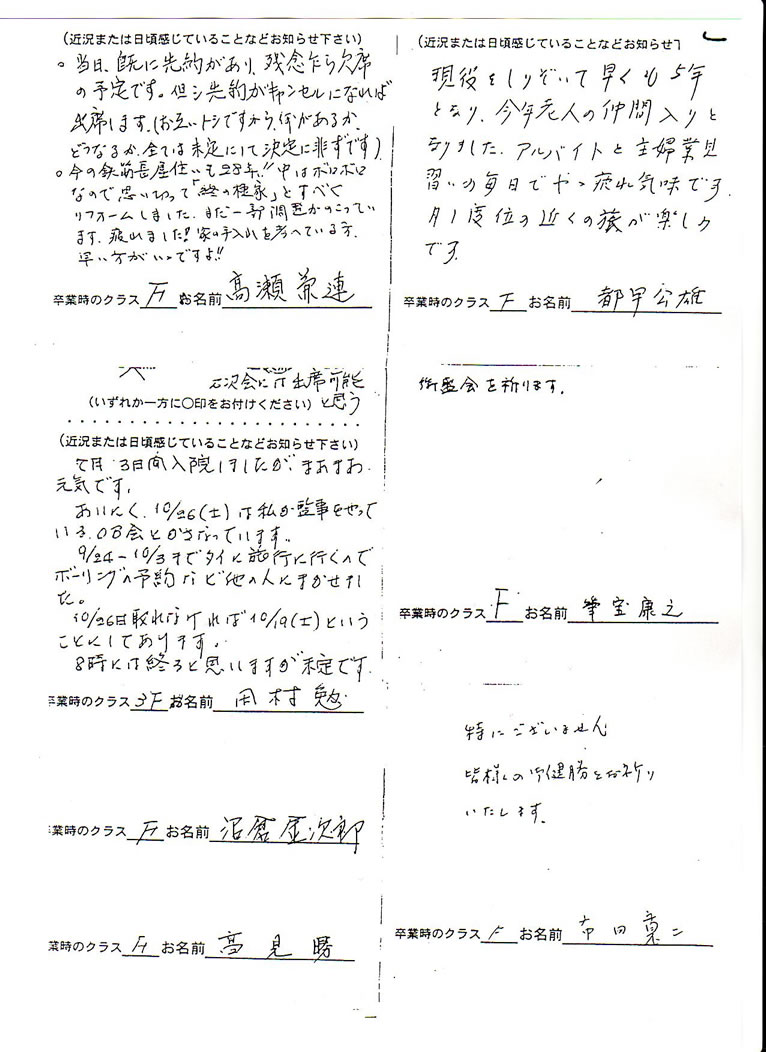 (近況または日頃感じていることなどお知らせ下さい)
。当日、既に先約があり、残念乍ら欠席
の予定です。但シ先約がキャンセルになれば
出席します。(お互いトシですから、何があるか、
どうなるか、全ては未定にて決定に非ずです)
。今の鉄筋長屋住いも28年!! 中はボロボロ
なので思い切って「終の棲家」とすべく
リフォームしました。まだ一部調整がのこってい
ます。疲れました!! 家の手入れを考へている方、
早い方がいいですよ!!
卒業時のクラス F お名前 高瀬 兼連
石沢会に行 出席可能
(いずれか一方に○印をお付けください) と思う
(近況または日頃感じていることなどお知らせ下さい)
7月 3日間入院しましたが、まあまあ
元気です。
あいにく、10/26(土)は私が監事をやって
いるOB会とかさなっています。
9/24-10/3までタイに旅行に行くので
ボーリングの予約など他の人にまかせまし
た。
10/26日取れなければ10/19(土)という
ことにしてあります。
8時には終ると思いますが未定です。
卒業時のクラス 3F お名前 田村 勉
業時のクラス F お名前 沼倉 金次郎
業時のクラス F お名前 高見 曙
(近況または日頃感じていることなどお知らせ下
現役をしりぞいて早くも5年
となり、今年老人の仲間入りと
なりました。アルバイトと主婦業見
習いの毎日でやゝ疲れ気味です。
月1度位の近くの旅が楽しみ
です。
卒業時のクラス F お名前 都甲 公雄
御盛会を祈ります。
卒業時のクラス F お名前 筆宝 康之
特にございません
皆様の御健勝をお祈り
いたします。
卒業時のクラス F お名前 市田